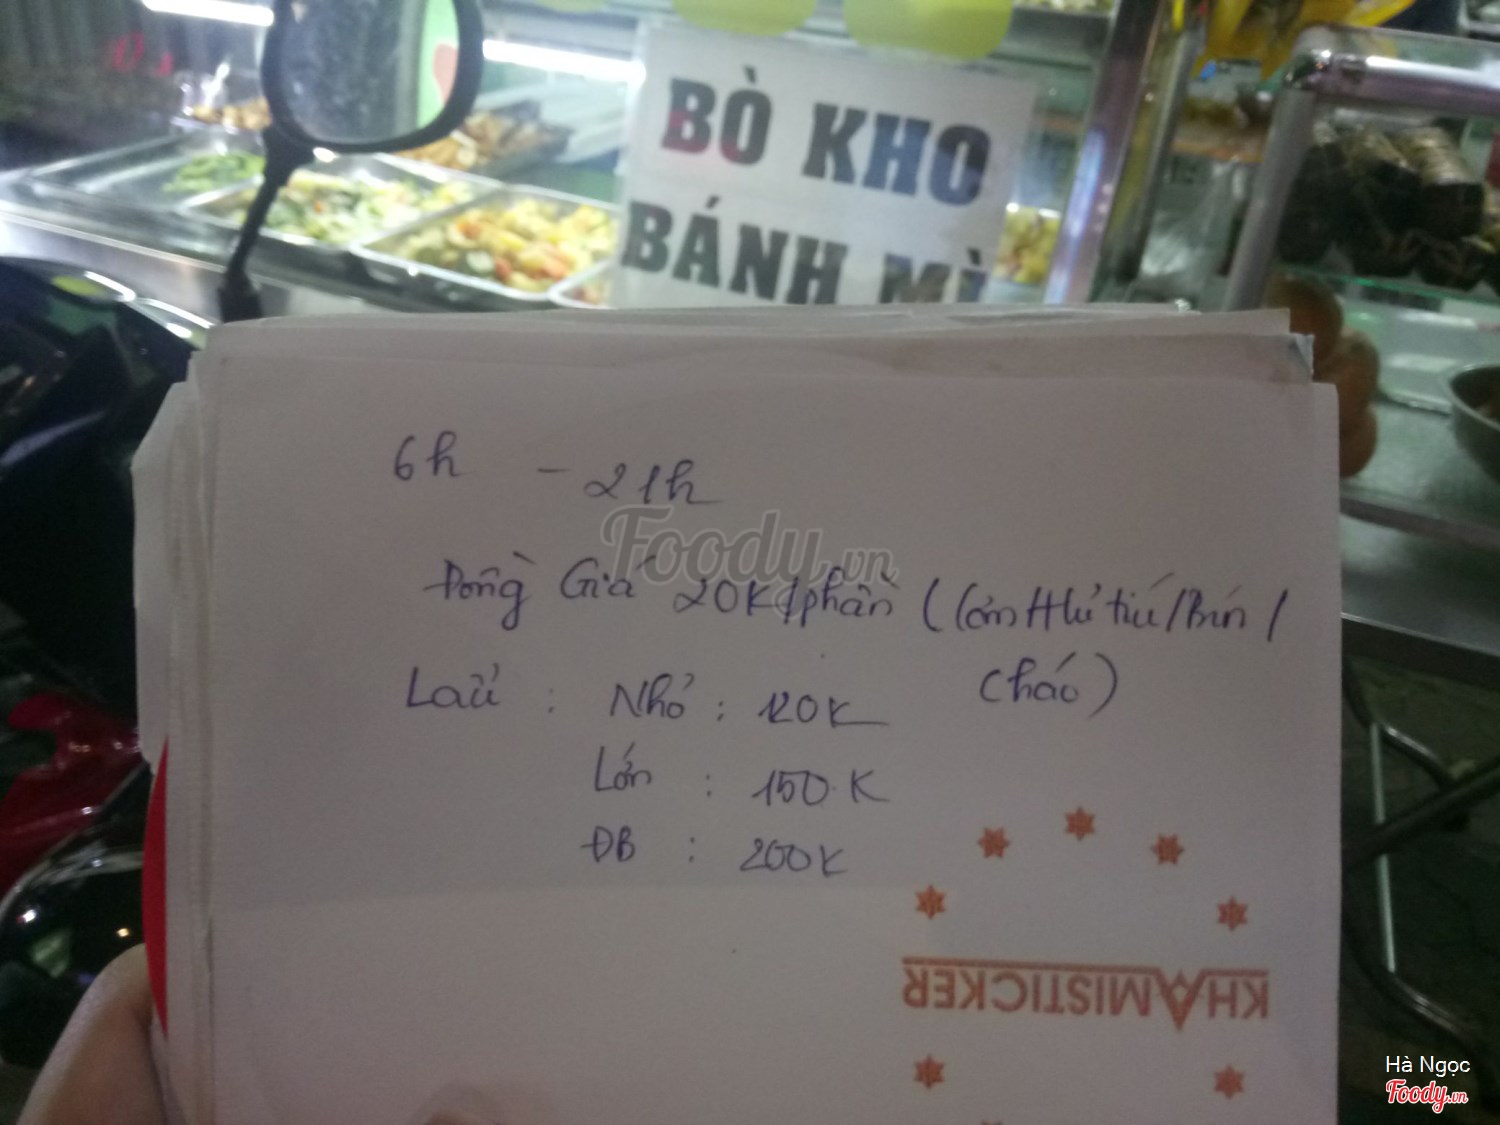 BÒ KHO
BÁNH MÌ
6h - 21h
Foody.vn
Đồng Giá 20K/phần (Cơm/Hủ tiếú/Bún/
Cháo)
Lẩu : Nhỏ : 120K
Lớn : 150K
ĐB : 200K
KHAMISTICKER
Hà Ngọc
Foody.vn